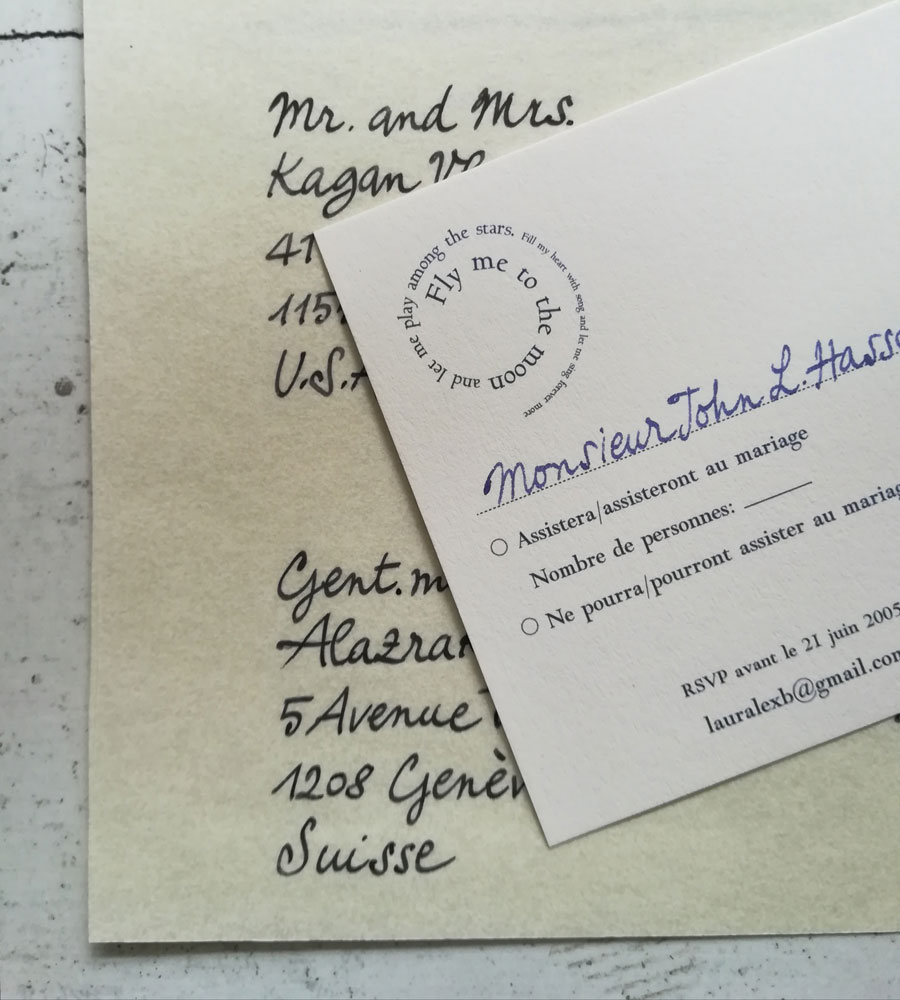 Mr. and Mrs.
Kagan
U.S.A
Gent.m
5 Avenue
1208 Genèv
Suisse
Fly me to the moon and let me play among the stars. Fill my heart with song and let me sing forever more
Monsieur John L. Hass
Assistera/assisteront au mariage
Nombre de personnes:
Ne pourra/pourront assister au mariag
RSVP avant le 21 juin 2005
lauralexb@gmail.com